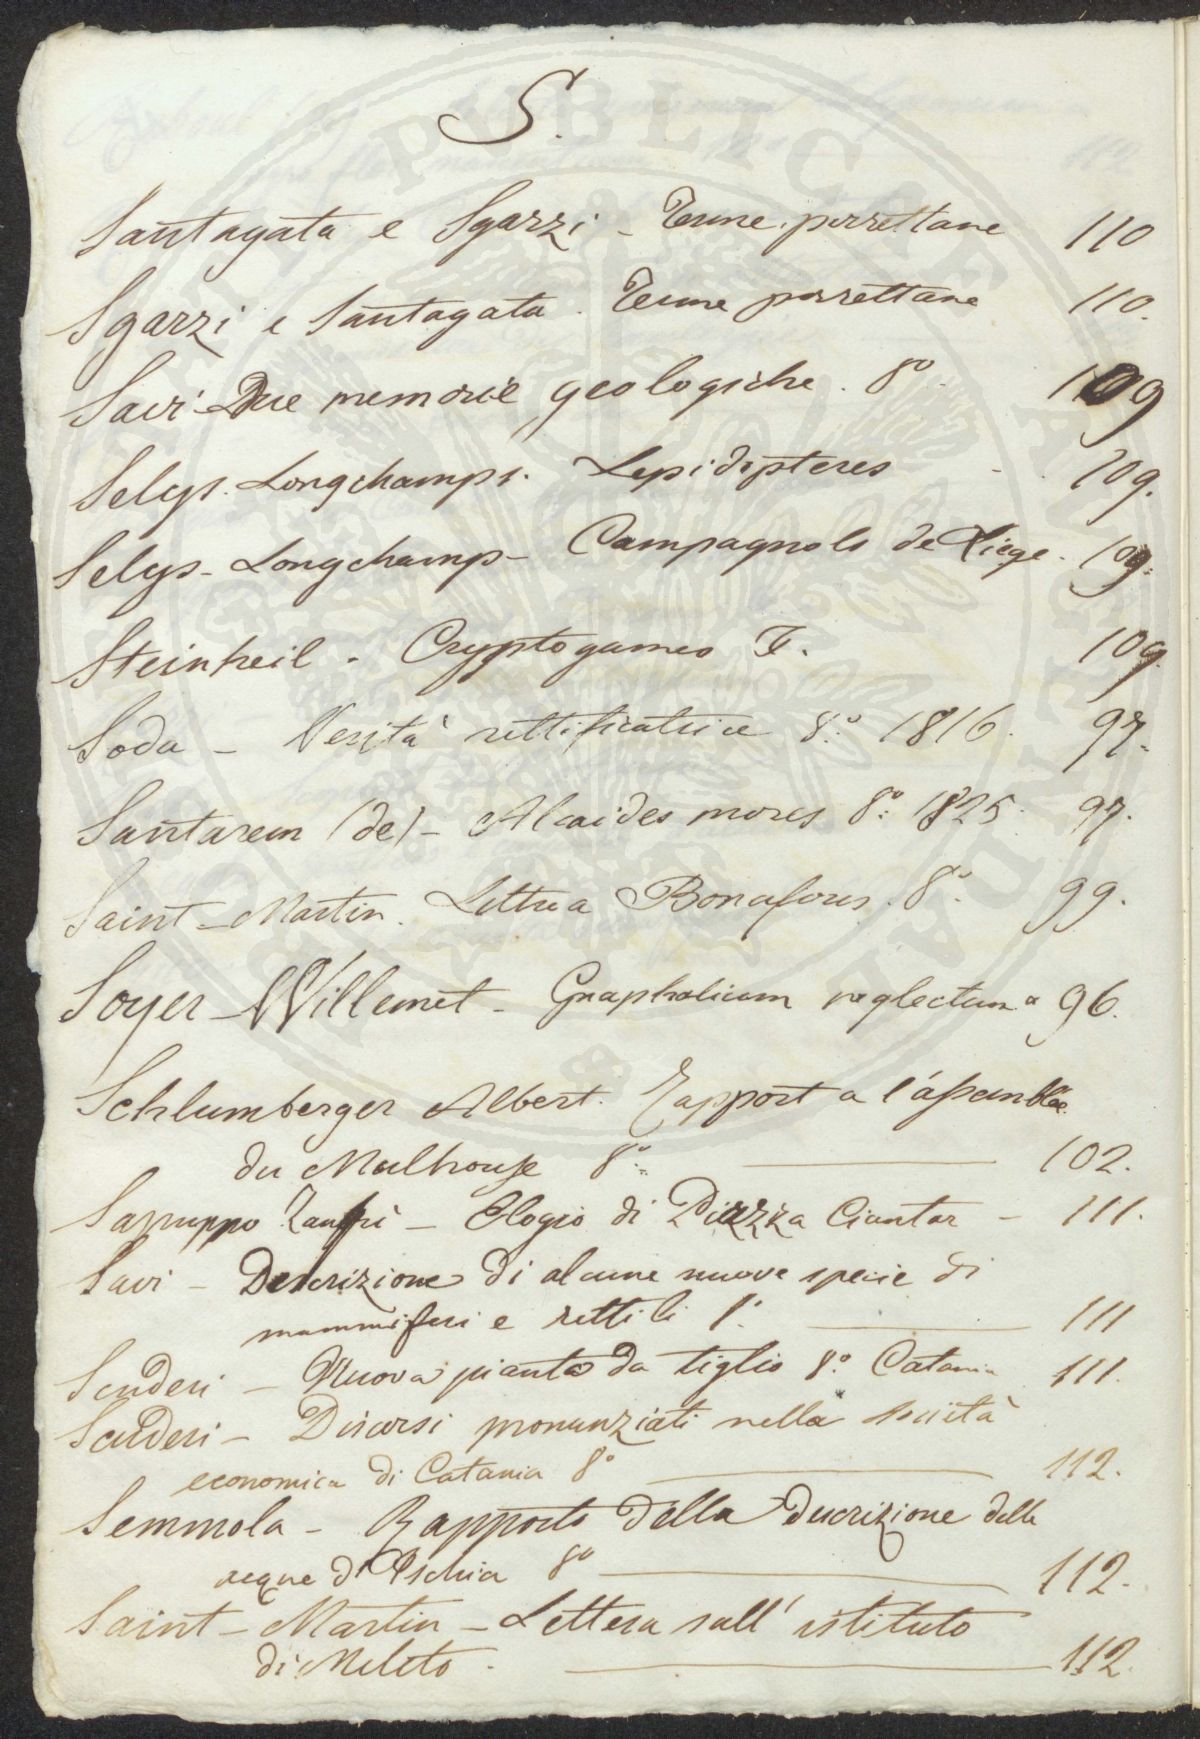 S.
Santagata e Sgarzi - Terme porrettane 110
Sgarzi e Santagata. Terme porrettane 110.
Savi Due memorie geologiche. 8º 109
Selys. Longchamps. Lepidopteres - 109.
Selys - Longchamps - Campagnols de Liege. 109.
Steinheil. Cryptogames F. 109.
Soda - Verità rettificatrice 8º 1816. 97.
Santarem (de) - Alcaides mores 8º 1825. 97.
Saint-Martin. Lettre a Bonafous. 8º. 99.
Soyer-Willemet - Gnaphalium neglectum 96.
Schlumberger Albert. Rapport a l'assemblée
du Mulhouse 8º. 102.
Sapuppo Zanghi - Elogio di Piazza Ciantar - 111.
Savi - Descrizione di alcune nuove specie di
mammiferi e rettili 8º. 111
Scuderi - Nuova pianta da tiglio 8º. Catania 111.
Scuderi - Discorsi pronunziati nella società
economica di Catania 8º 112.
Semmola - Rapporto della descrizione delle
acque d'Ischia 8º 112.
Saint-Martin - Lettera sull' istituto
di Meleto. 112.
PUBLICAE